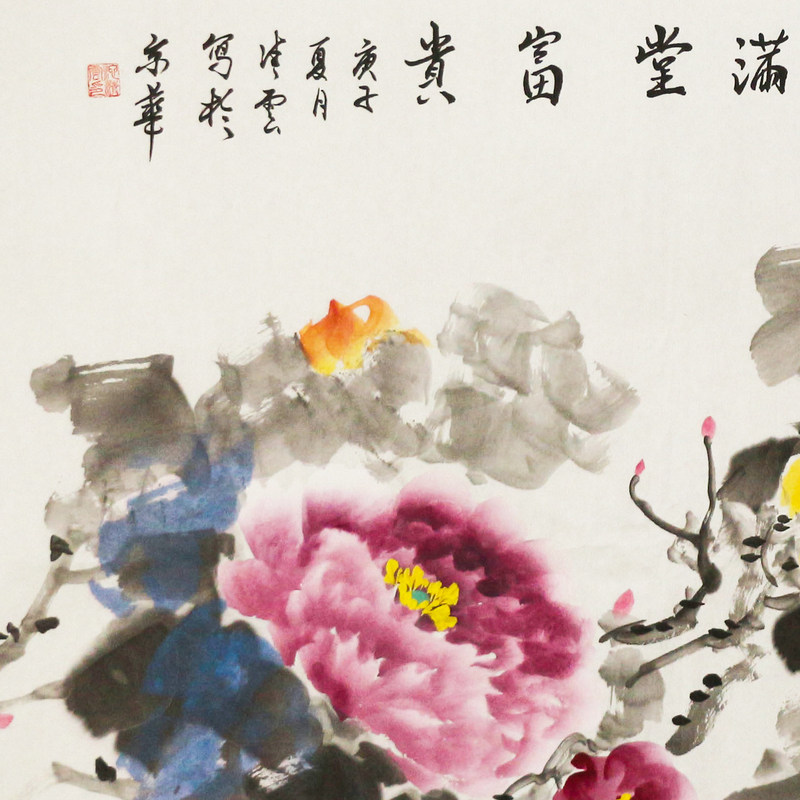 滿堂富貴
庚子
夏月
清雲
寫於
京華